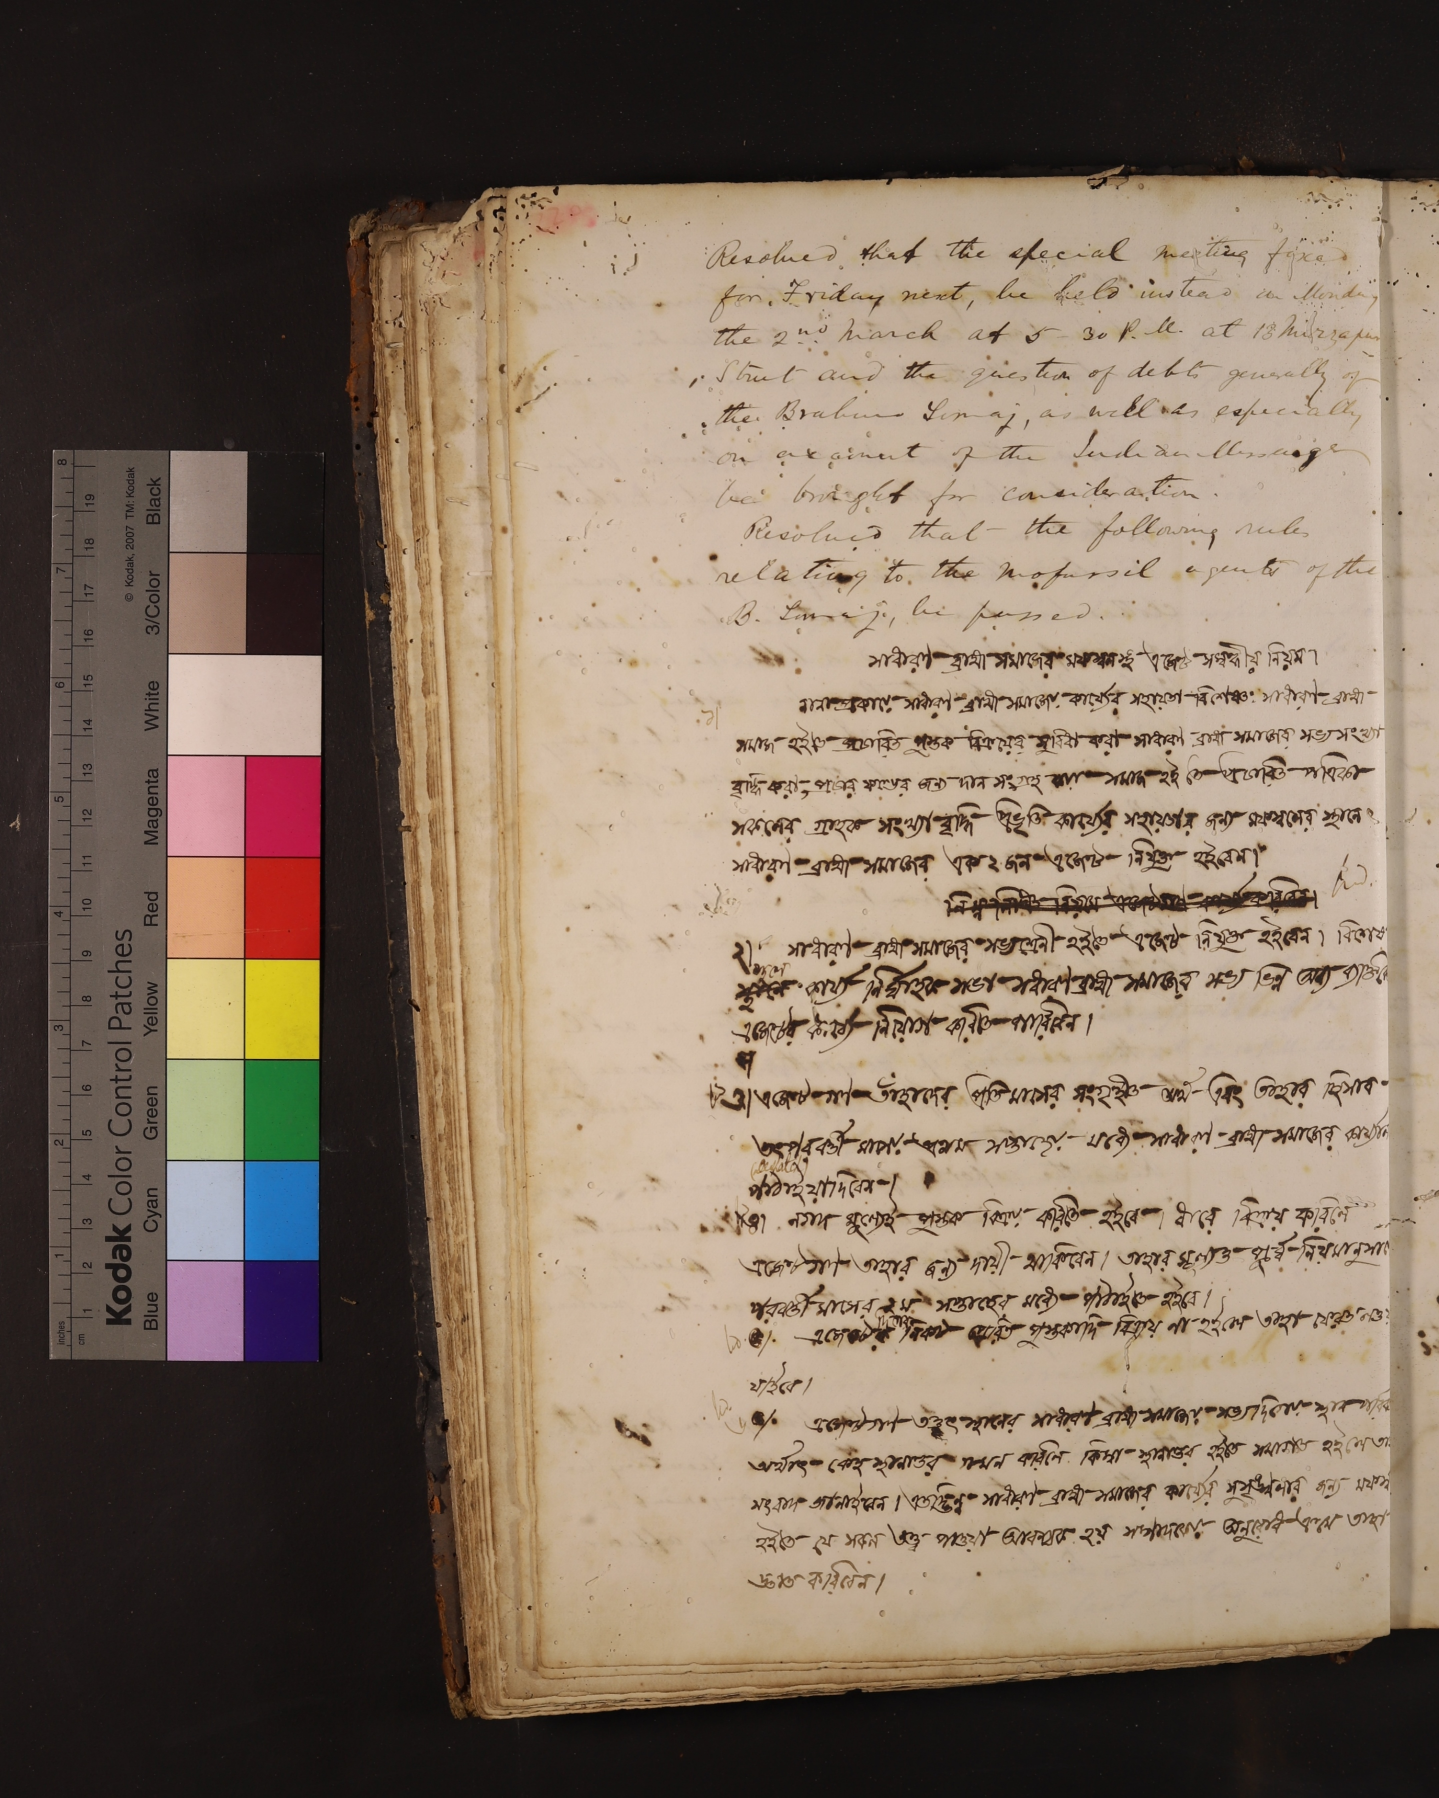 Resolved that the special meeting fixed
for Friday next, be held instead on Monday
the 2nd March at 5-30 P.M. at 13 Mirzapur
Street and the question of debts generally of
the Brahmo Somaj, as well as especially
on account of the Indian Messenger
be brought for consideration.
Resolved that the following rules
relating to the mofussil agents of the
B. Somaj, be passed.
সাধারণ ব্রাহ্ম সমাজের মফস্বলস্থ এজেন্ট সম্বন্ধীয় নিয়ম।
১। নানা প্রকারে সাধারণ ব্রাহ্ম সমাজের কার্য্যের সহায়তা বিশেষতঃ সাধারণ ব্রাহ্ম
সমাজ হইতে প্রচারিত পুস্তক বিক্রয়ের সুবিধা করা সাধারণ ব্রাহ্ম সমাজের সভ্য সংখ্যা
বৃদ্ধি করা, প্রচার ফণ্ডের জন্য দান সংগ্রহ করা সমাজ হইতে প্রচারিত পত্রিকা
সকলের গ্রাহক সংখ্যা বৃদ্ধি প্রভৃতি কার্য্যের সহায়তার জন্য মফস্বলের স্থানে ২
সাধারণ ব্রাহ্ম সমাজের এক ২ জন এজেন্ট নিযুক্ত হইবেন।
নিম্ন লিখিত নিয়মে এজেন্টগণ কার্য্য করিবেন।
২। সাধারণ ব্রাহ্ম সমাজের সভ্যশ্রেণী হইতে এজেন্ট নিযুক্ত হইবেন। বিশেষ
স্থলে কার্য্য নির্ব্বাহক সভা সাধারণ ব্রাহ্ম সমাজের সভ্য ভিন্ন অন্য ব্যক্তিকে
এজেন্টের কার্য্যে নিয়োগ করিতে পারিবেন।
৩। এজেন্টগণ তাঁহাদের প্রতি মাসের সংগৃহীত অর্থ এবং তাহার হিসাব
তৎপরবর্ত্তী মাসের প্রথম সপ্তাহের মধ্যে সাধারণ ব্রাহ্ম সমাজের
পাঠাইয়া দিবেন।
৪। নগদ মূল্যেই পুস্তক বিক্রয় করিতে হইবে। ধারে বিক্রয় করিলে
এজেন্টগণ তাহার জন্য দায়ী থাকিবেন। তাহার মূল্যও পূর্ব্ব নিয়মানুসারে
পরবর্ত্তী মাসের ১ম সপ্তাহের মধ্যে পাঠাইতে হইবে।
৫। এজেন্টদিগের নিকট প্রেরিত পুস্তকাদি বিক্রয় না হইলে তাহা ফেরত লওয়া
যাইবে।
৬। এজেন্টগণ তত্তৎ স্থানের সাধারণ ব্রাহ্ম সমাজের সভ্যদিগের স্থান
অর্থাৎ কেহ স্থানান্তর গমন করিলে কিম্বা স্থানান্তর হইতে সমাগত হইলে
সংবাদ জানাইবেন। এতদ্ভিন্ন সাধারণ ব্রাহ্ম সমাজের কার্য্যের সুশৃঙ্খলার জন্য
হইতে যে সকল তত্ত্ব পাওয়া আবশ্যক হয় সম্পাদকের অনুরোধ ক্রমে তাহা
জ্ঞাত করিবেন।
Kodak Color Control Patches
© Kodak, 2007 TM: Kodak
Blue Cyan Green Yellow Red Magenta White 3/Color Black